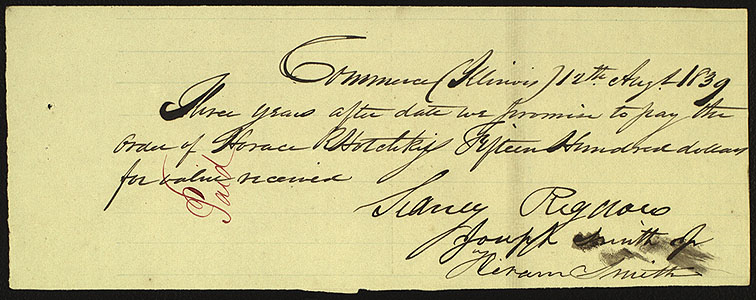 Commerce (Illinois) 12th Augt. 1839
Three years after date we promise to pay the
order of Horace Hotchkiss Fifteen Hundred dollars
for value received
Paid
Sidney Rigdon
Joseph Smith Jr
Hiram Smith